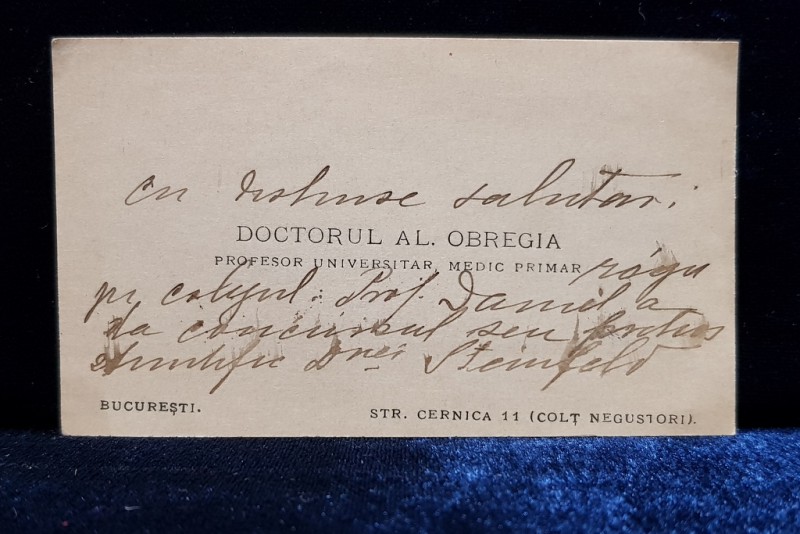 cu distinse salutari
DOCTORUL AL. OBREGIA
PROFESOR UNIVERSITAR, MEDIC PRIMAR
rógu
pe colegul Prof. Daniel a
da concursul seu
stiintific Dnei Steinfeld
BUCUREȘTI.
STR. CERNICA 11 (COLȚ NEGUSTORI).